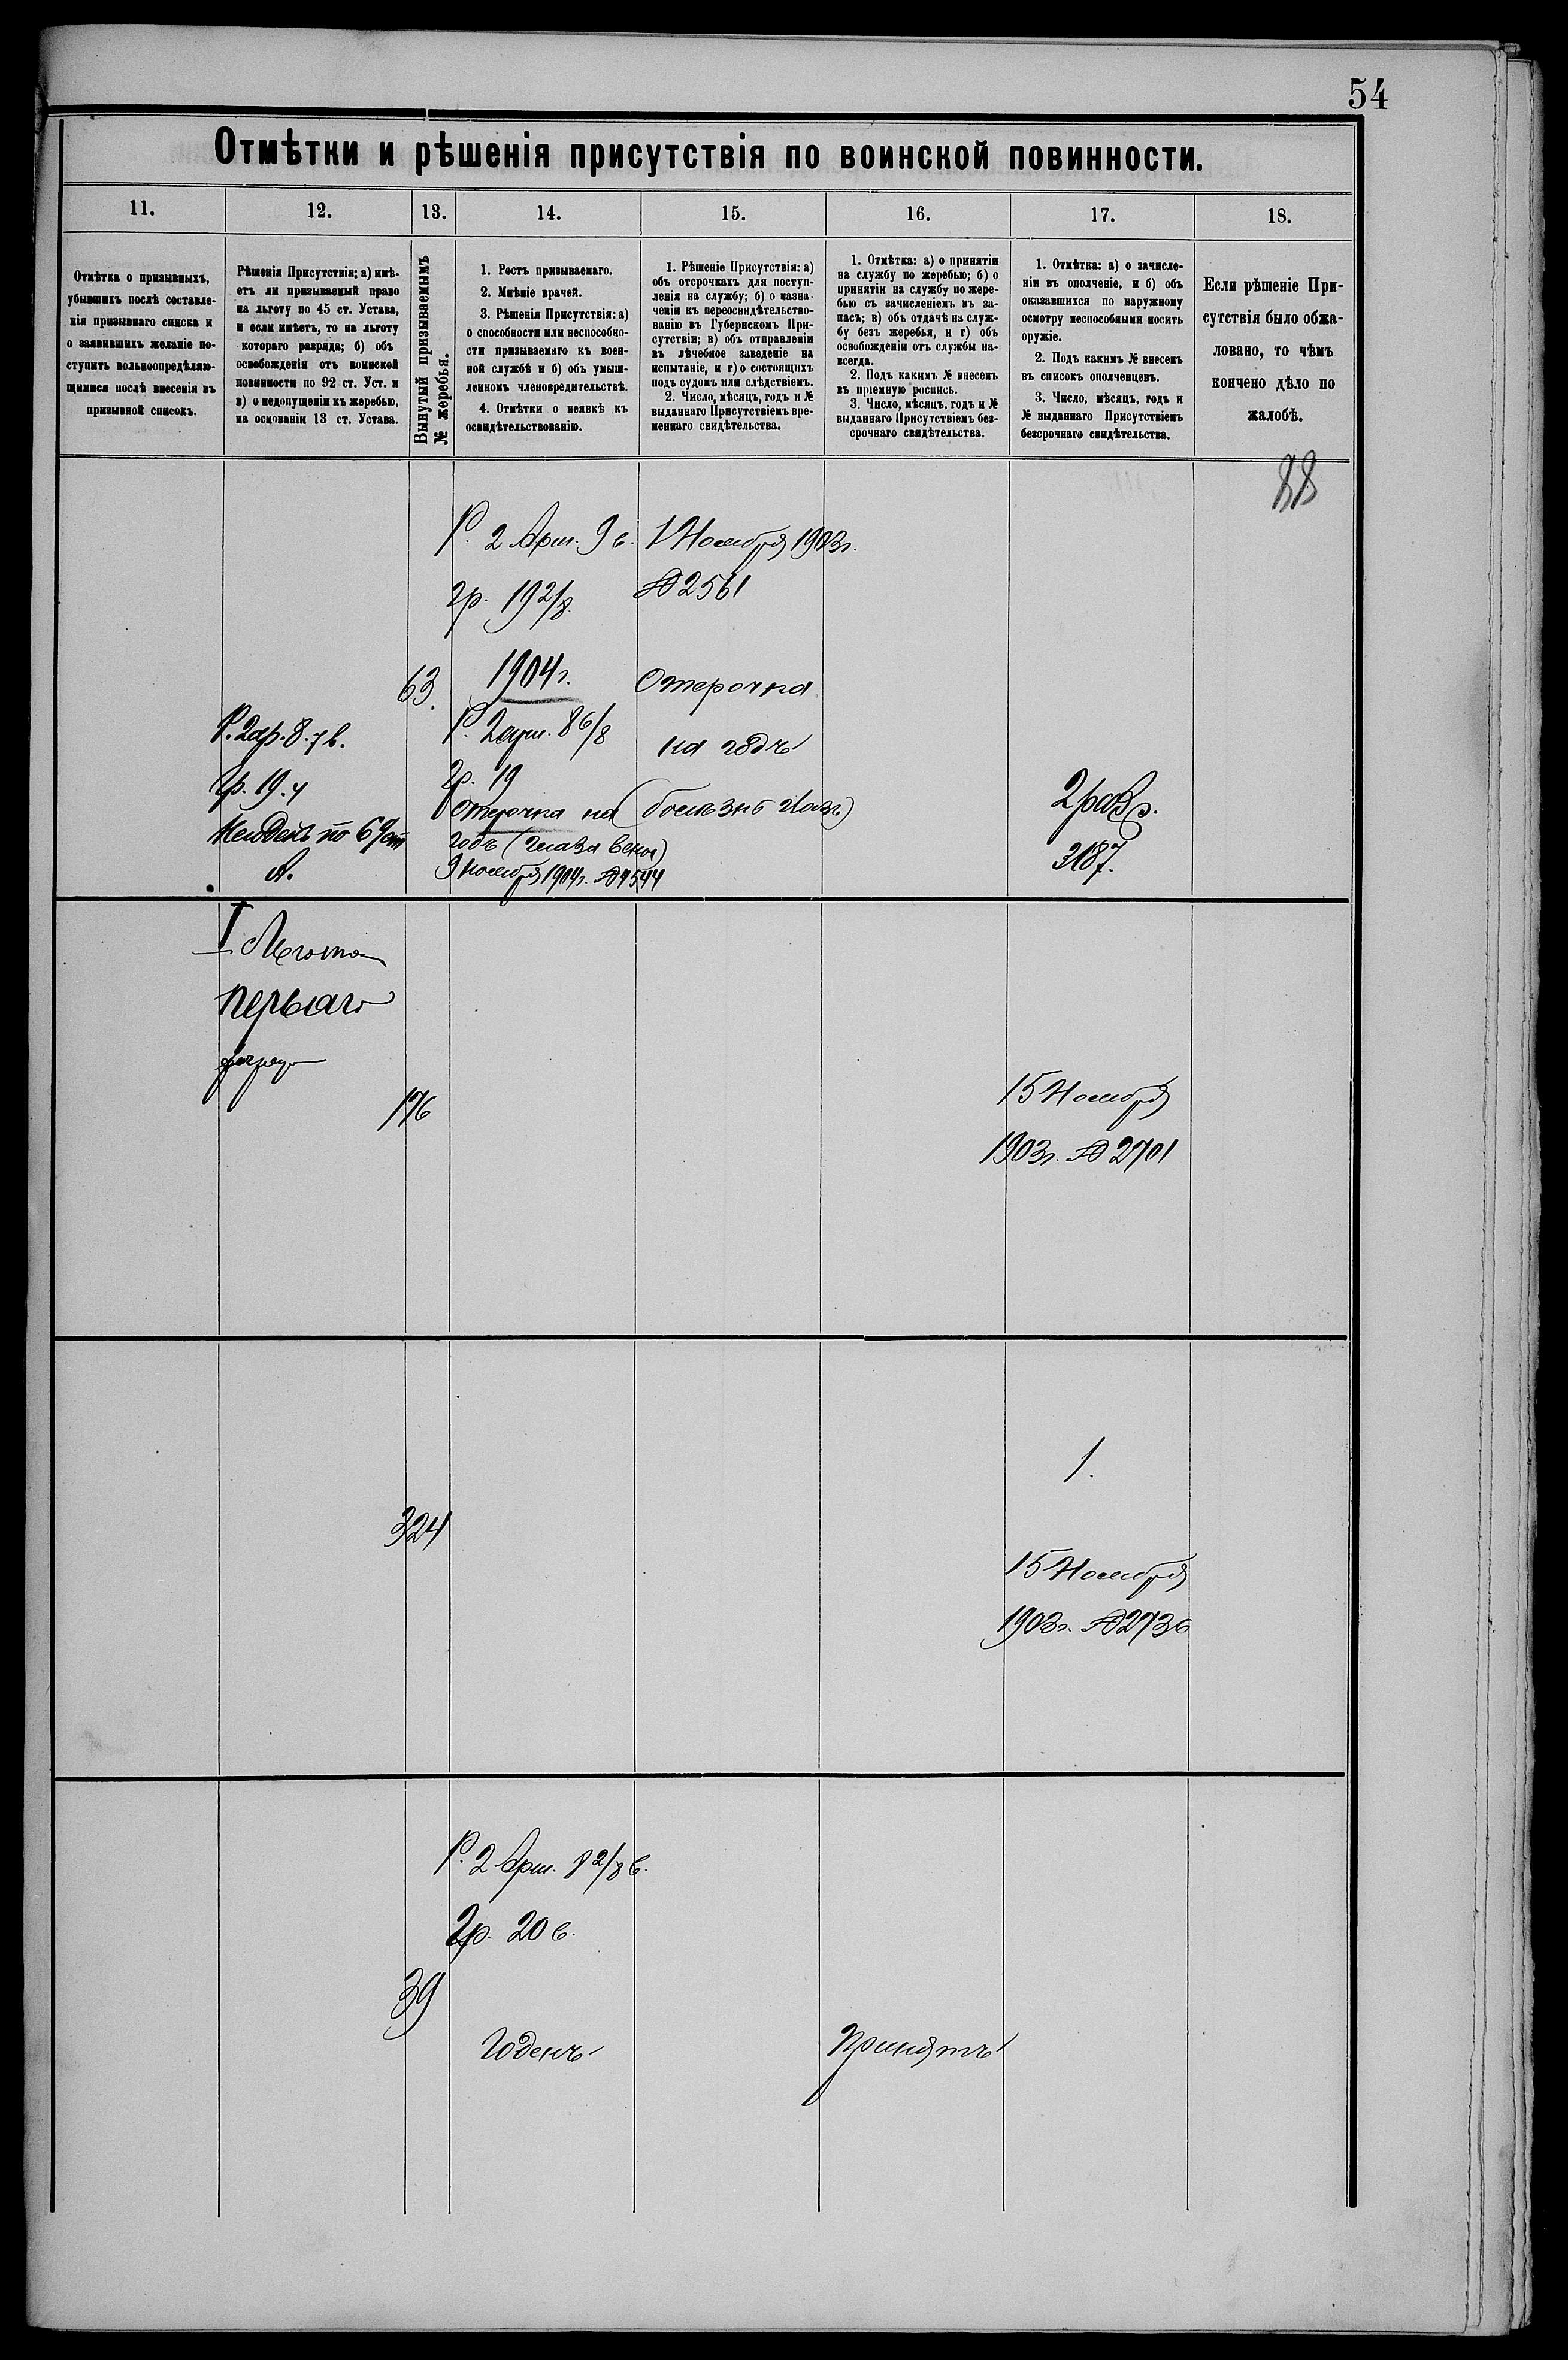 54
Отмѣтки и рѣшенія присутствія по воинской повинности.
11.
12.
13.
14.
15.
16.
17.
18.
Отмѣтка о призывныхъ,
убывшихъ послѣ составле-
нія призывнаго списка и
о заявившихъ желаніе по-
ступить вольноопредѣляю-
щимися послѣ внесенія въ
призывной списокъ.
Рѣшенія Присутствія: а) имѣ-
етъ ли призываемый право
на льготу по 45 ст. Устава,
и если имѣетъ, то на льготу
котораго разряда; б) объ
освобожденіи отъ воинской
повинности по 92 ст. Уст. и
в) о недопущеніи къ жеребью,
на основаніи 13 ст. Устава.
Вынутый призываемымъ
№ жеребья.
1. Ростъ призываемаго.
2. Мнѣніе врачей.
3. Рѣшенія Присутствія: а)
о способности или неспособно-
сти призываемаго къ воен-
ной службѣ и б) объ умыш-
ленномъ членовредительствѣ.
4. Отмѣтки о неявкѣ къ
освидѣтельствованію.
1. Рѣшеніе Присутствія: а)
объ отсрочкахъ для поступ-
ленія на службу; б) о назна-
ченіи къ переосвидѣтельство-
ванію въ Губернскомъ При-
сутствіи; в) объ отправленіи
въ лѣчебное заведеніе на
испытаніе, и г) о состоящихъ
подъ судомъ или слѣдствіемъ.
2. Число, мѣсяцъ, годъ и №
выданнаго Присутствіемъ вре-
меннаго свидѣтельства.
1. Отмѣтка: а) о принятіи
на службу по жеребью; б) о
принятіи на службу по жере-
бью съ зачисленіемъ въ за-
пасъ; в) объ отдачѣ на служ-
бу безъ жеребья, и г) объ
освобожденіи отъ службы на-
всегда.
2. Подъ какимъ № внесенъ
въ пріемную роспись.
3. Число, мѣсяцъ, годъ и №
выданнаго Присутствіемъ без-
срочнаго свидѣтельства.
1. Отмѣтка: а) о зачисле-
ніи въ ополченіе, и б) объ
оказавшихся по наружному
осмотру неспособными носить
оружіе.
2. Подъ какимъ № внесенъ
въ списокъ ополченцевъ.
3. Число, мѣсяцъ, годъ и
№ выданнаго Присутствіемъ
безсрочнаго свидѣтельства.
Если рѣшеніе При-
сутствія было обжа-
ловано, то чѣмъ
кончено дѣло по
жалобѣ.
88
Р. 2 ар. 8.7 в.
гр. 19.4
Негоденъ по 69 ст
А.
63.
Р. 2 Арш. 9 в.
гр. 19 2/8.
1904 г.
Р. 2 арш. 8 6/8
гр. 19
Отсрочка на
годъ (глаза века)
9 ноября 1904 г. № 4544
1 Ноября 1903 г.
№ 2561
Отсрочка
на годъ
(болѣзнь глазъ)
2 разр.
3187.
I Льгота
перваго
разряда
176
15 Ноября
1903 г. № 2701
324
1.
15 Ноября
1903 г. № 2736
Р. 2 Арш. 8 2/8 в.
Гр. 20 в.
39
Годенъ
Принятъ